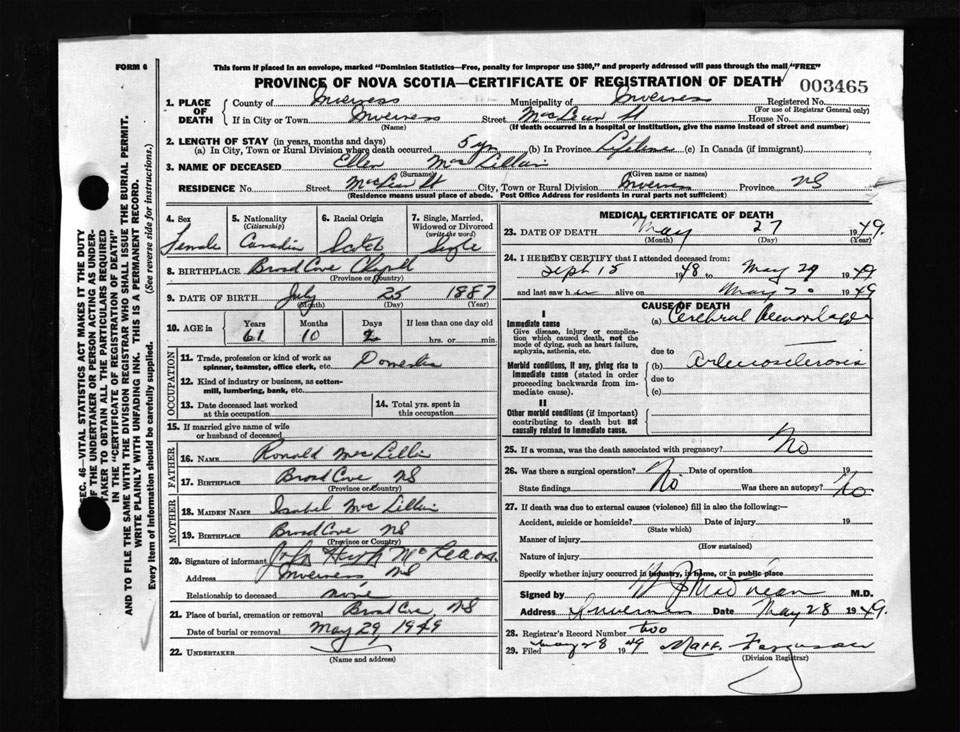 FORM 6
This form if placed in an envelope, marked "Dominion Statistics—Free, penalty for improper use $300," and properly addressed will pass through the mail "FREE"
PROVINCE OF NOVA SCOTIA—CERTIFICATE OF REGISTRATION OF DEATH 003465
1. PLACE OF DEATH County of Inverness Municipality of Inverness Registered No.
(For use of Registrar General only)
If in City or Town Inverness Street MacLean St House No.
(Name) (If death occurred in a hospital or institution, give the name instead of street and number)
2. LENGTH OF STAY (in years, months and days)
(a) In City, Town or Rural Division where death occurred 5 yrs (b) In Province Lifetime (c) In Canada (if immigrant)
3. NAME OF DECEASED Ellen MacLellan
(Surname) (Given name or names)
RESIDENCE No. Street MacLean St City, Town or Rural Division Inverness Province NS
(Residence means usual place of abode. Post Office Address for residents in rural parts not sufficient)
4. Sex Female
5. Nationality (Citizenship) Canadian
6. Racial Origin Scotch
7. Single, Married, Widowed or Divorced (write the word) Single
8. BIRTHPLACE Broad Cove Chapell
(Province or Country)
9. DATE OF BIRTH July 25 1887
(Month) (Day) (Year)
10. AGE in Years Months Days If less than one day old
61 10 2 hrs. or min.
OCCUPATION
11. Trade, profession or kind of work as spinner, teamster, office clerk, etc. Domestic
12. Kind of industry or business, as cotton-mill, lumbering, bank, etc.
13. Date deceased last worked at this occupation
14. Total yrs. spent in this occupation
15. If married give name of wife or husband of deceased
FATHER
16. Name Ronald McLellan
17. Birthplace Broad Cove NS
(Province or Country)
MOTHER
18. Maiden Name Isabel McLellan
19. Birthplace Broad Cove NS
(Province or Country)
20. Signature of informant John Hugh
Address Inverness, NS
Relationship to deceased none
21. Place of burial, cremation or removal Broad Cove NS
Date of burial or removal May 29, 1949
22. UNDERTAKER
(Name and address)
MEDICAL CERTIFICATE OF DEATH
23. DATE OF DEATH May 27 1949.
(Month) (Day) (Year)
24. I HEREBY CERTIFY that I attended deceased from:
Sept 15 1948 to May 1949
and last saw her alive on May 1949
CAUSE OF DEATH
I
Immediate cause
Give disease, injury or complication which caused death, not the mode of dying, such as heart failure, asphyxia, asthenia, etc.
(a) Cerebral Hemorrhage
due to
Morbid conditions, if any, giving rise to immediate cause (stated in order proceeding backwards from immediate cause).
(b) Arteriosclerosis
due to
(c)
II
Other morbid conditions (if important) contributing to death but not causally related to immediate cause.
25. If a woman, was the death associated with pregnancy? No
26. Was there a surgical operation? No Date of operation 19
State findings Was there an autopsy? No
27. If death was due to external causes (violence) fill in also the following:—
Accident, suicide or homicide? Date of injury 19
(State which)
Manner of injury
(How sustained)
Nature of injury
Specify whether injury occurred in industry, in home, or in public place
Signed by M.D.
Address Inverness Date May 28 1949.
28. Registrar's Record Number two
29. Filed May 28 1949 Matt. Ferguson
(Division Registrar)
SEC. 46—VITAL STATISTICS ACT MAKES IT THE DUTY
OF THE UNDERTAKER OR PERSON ACTING AS UNDER-
TAKER TO OBTAIN ALL THE PARTICULARS REQUIRED
IN THE "CERTIFICATE OF REGISTRATION OF DEATH"
AND TO FILE THE SAME WITH THE DIVISION REGISTRAR WHO SHALL ISSUE THE BURIAL PERMIT.
WRITE PLAINLY WITH UNFADING INK. THIS IS A PERMANENT RECORD.
Every item of information should be carefully supplied. (See reverse side for instructions.)